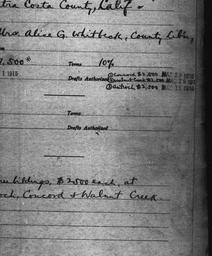 tra Costa County, Calif.
Mrs. Alice G. Whitbeck, County Libn,
7,500 Terms 10%
1 1915 Drafts Authorized ① Concord $2,500
② Walnut Creek $2,500
③ Antioch, $2,500
Terms
Drafts Authorized
buildings, $2500 each, at
och, Concord & Walnut Creek.